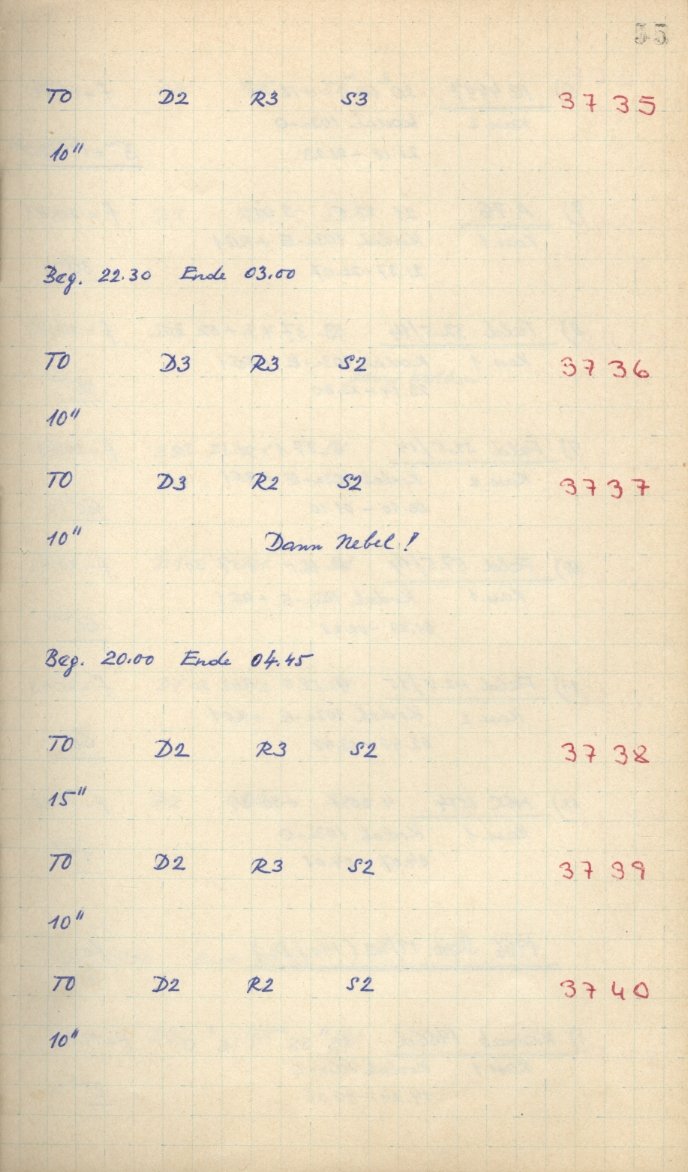 55
TO D2 R3 S3 3735
10"
Beg. 22.30 Ende 03.00
TO D3 R3 S2 3736
10"
TO D3 R2 S2 3737
10" Dann Nebel!
Beg. 20.00 Ende 04.45
TO D2 R3 S2 3738
15"
TO D2 R3 S2 3739
10"
TO D2 R2 S2 3740
10"